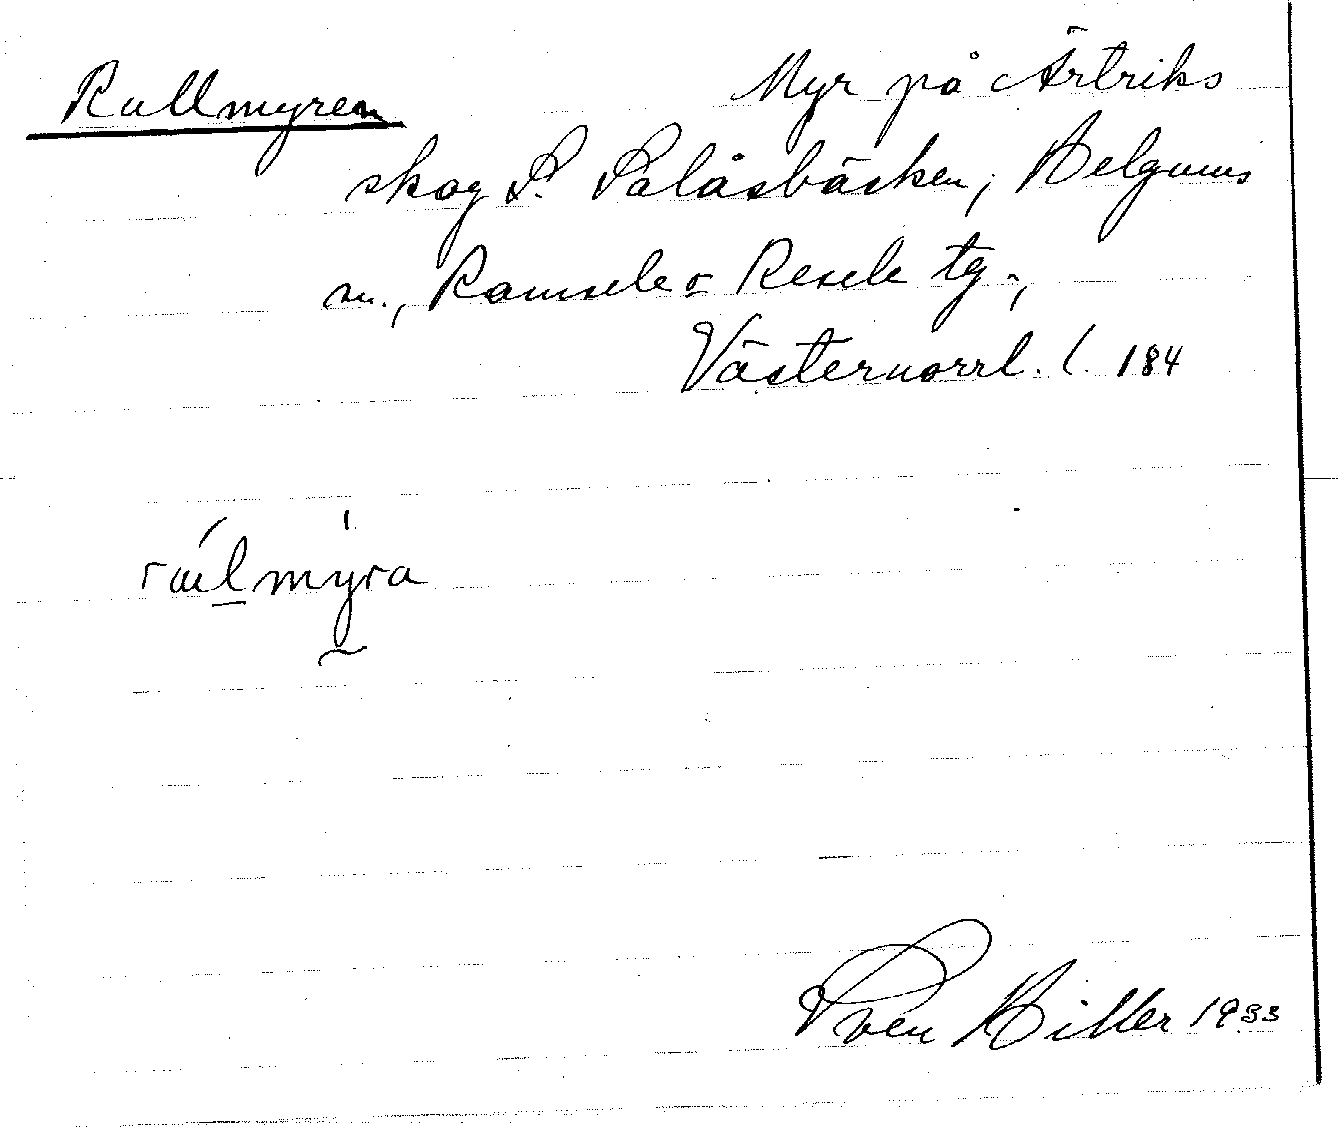 Rullmyren
Myr på Ärtriks
skog S. Salåsbäcken, Helgums
sn., Ramsele o Resele tg.,
Västernorrl. l. 184
rulmyra
Sven Hiller 1933